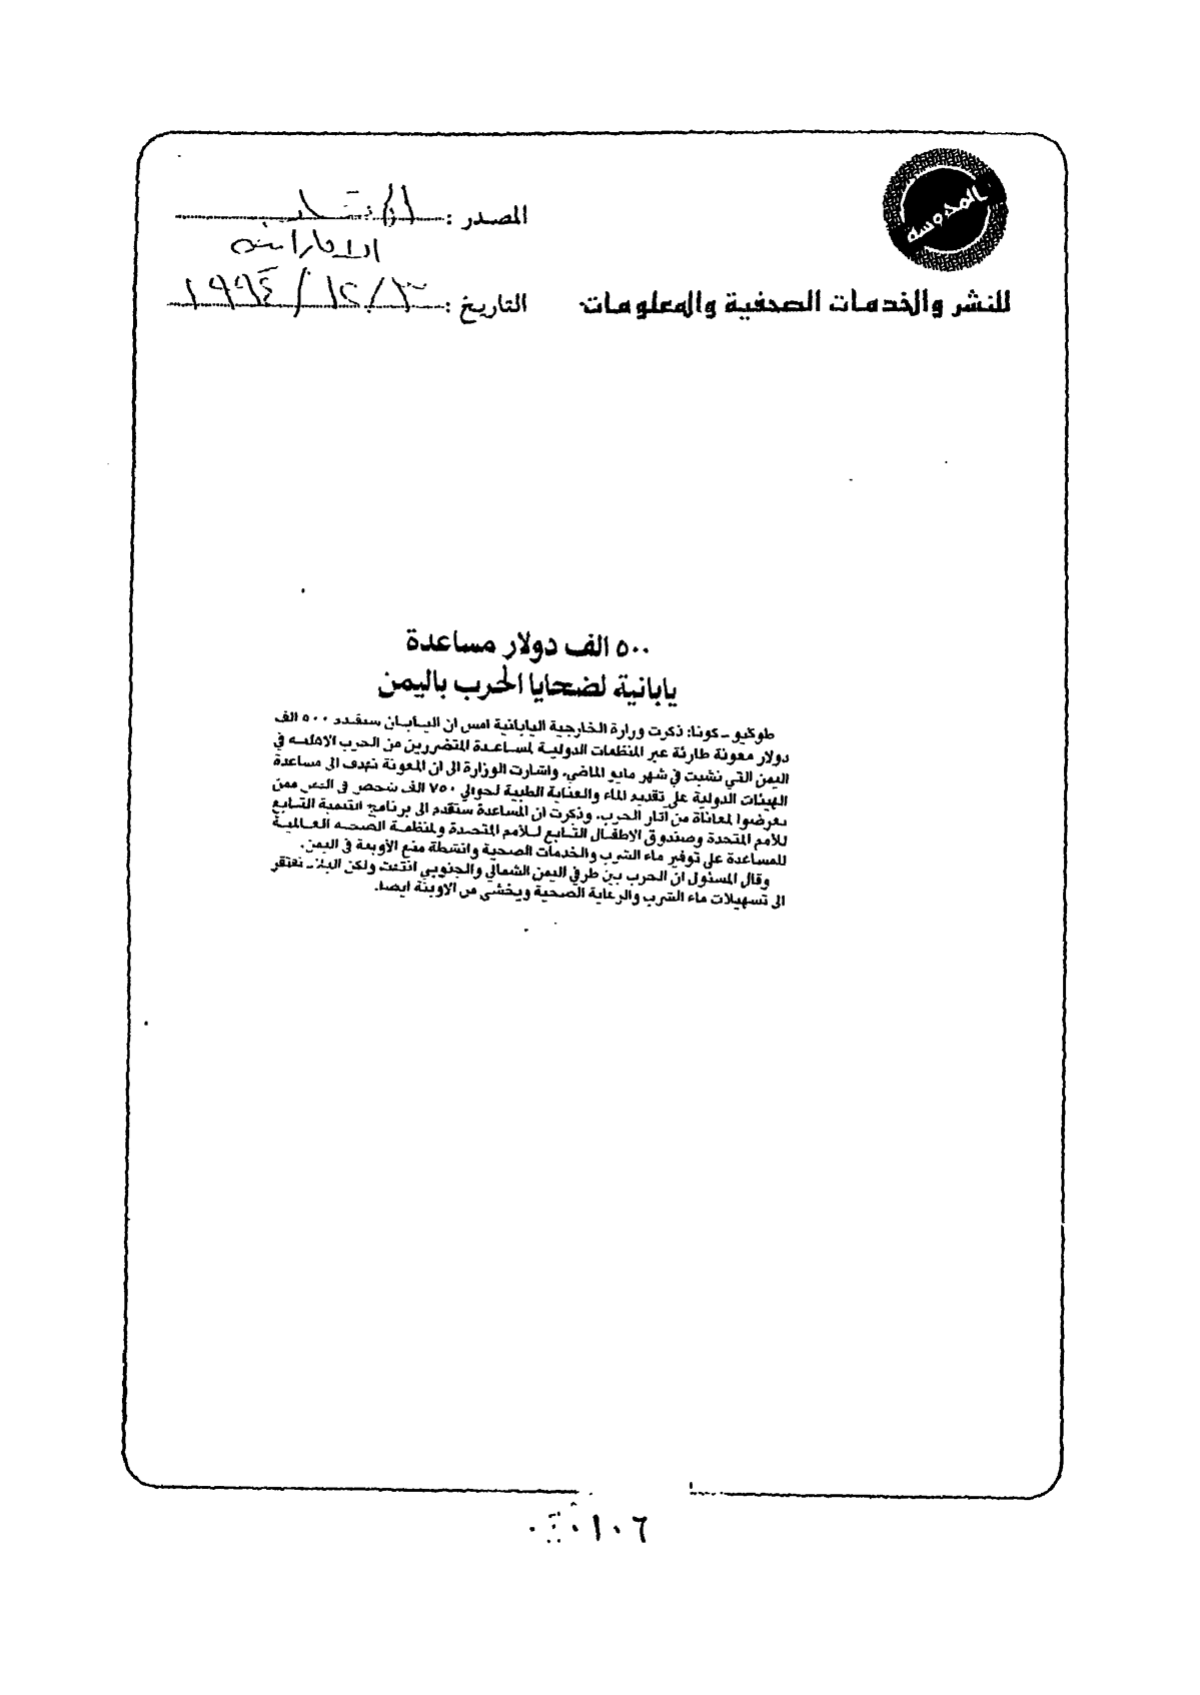 المحروسة
للنشر والخدمات الصحفية والمعلومات
المصدر :
الاماراتية
التاريخ : ١٩٩٤/١٢/٣
٥٠٠ الف دولار مساعدة
يابانية لضحايا الحرب باليمن
طوكيو ـ كونا: ذكرت وزارة الخارجية اليابانية امس ان اليابان ستقدم ٥٠٠ الف
دولار معونة طارئة عبر المنظمات الدولية لمساعدة المتضررين من الحرب الاهلية في
اليمن التي نشبت في شهر مايو الماضي. واشارت الوزارة الى ان المعونة تهدف الى مساعدة
الهيئات الدولية على تقديم الماء والعناية الطبية لحوالي ٧٥٠ الف شخص في اليمن ممن
تعرضوا لمعاناة من آثار الحرب. وذكرت ان المساعدة ستقدم الى برنامج التنمية التابع
للأمم المتحدة وصندوق الاطفال التابع للأمم المتحدة ولمنظمة الصحة العالمية
للمساعدة على توفير ماء الشرب والخدمات الصحية وانشطة منع الأوبئة في اليمن.
وقال المسئول ان الحرب بين طرفي اليمن الشمالي والجنوبي انتهت ولكن البلاد تفتقر
الى تسهيلات ماء الشرب والرعاية الصحية ويخشى من الاوبئة ايضا.